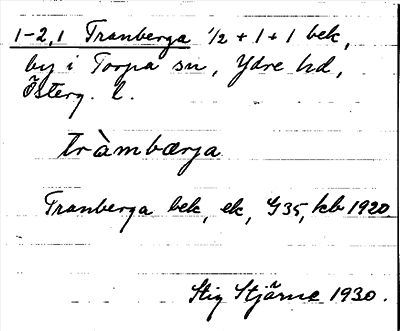 1-2,1 Tranberga 1/2 + 1 + 1 bek,
by i Torpa sn, Ydre hd,
Österg. l.
tràmbærja
Tranberga bek, ek, G35, kb 1920
Stig Stjärne 1930.